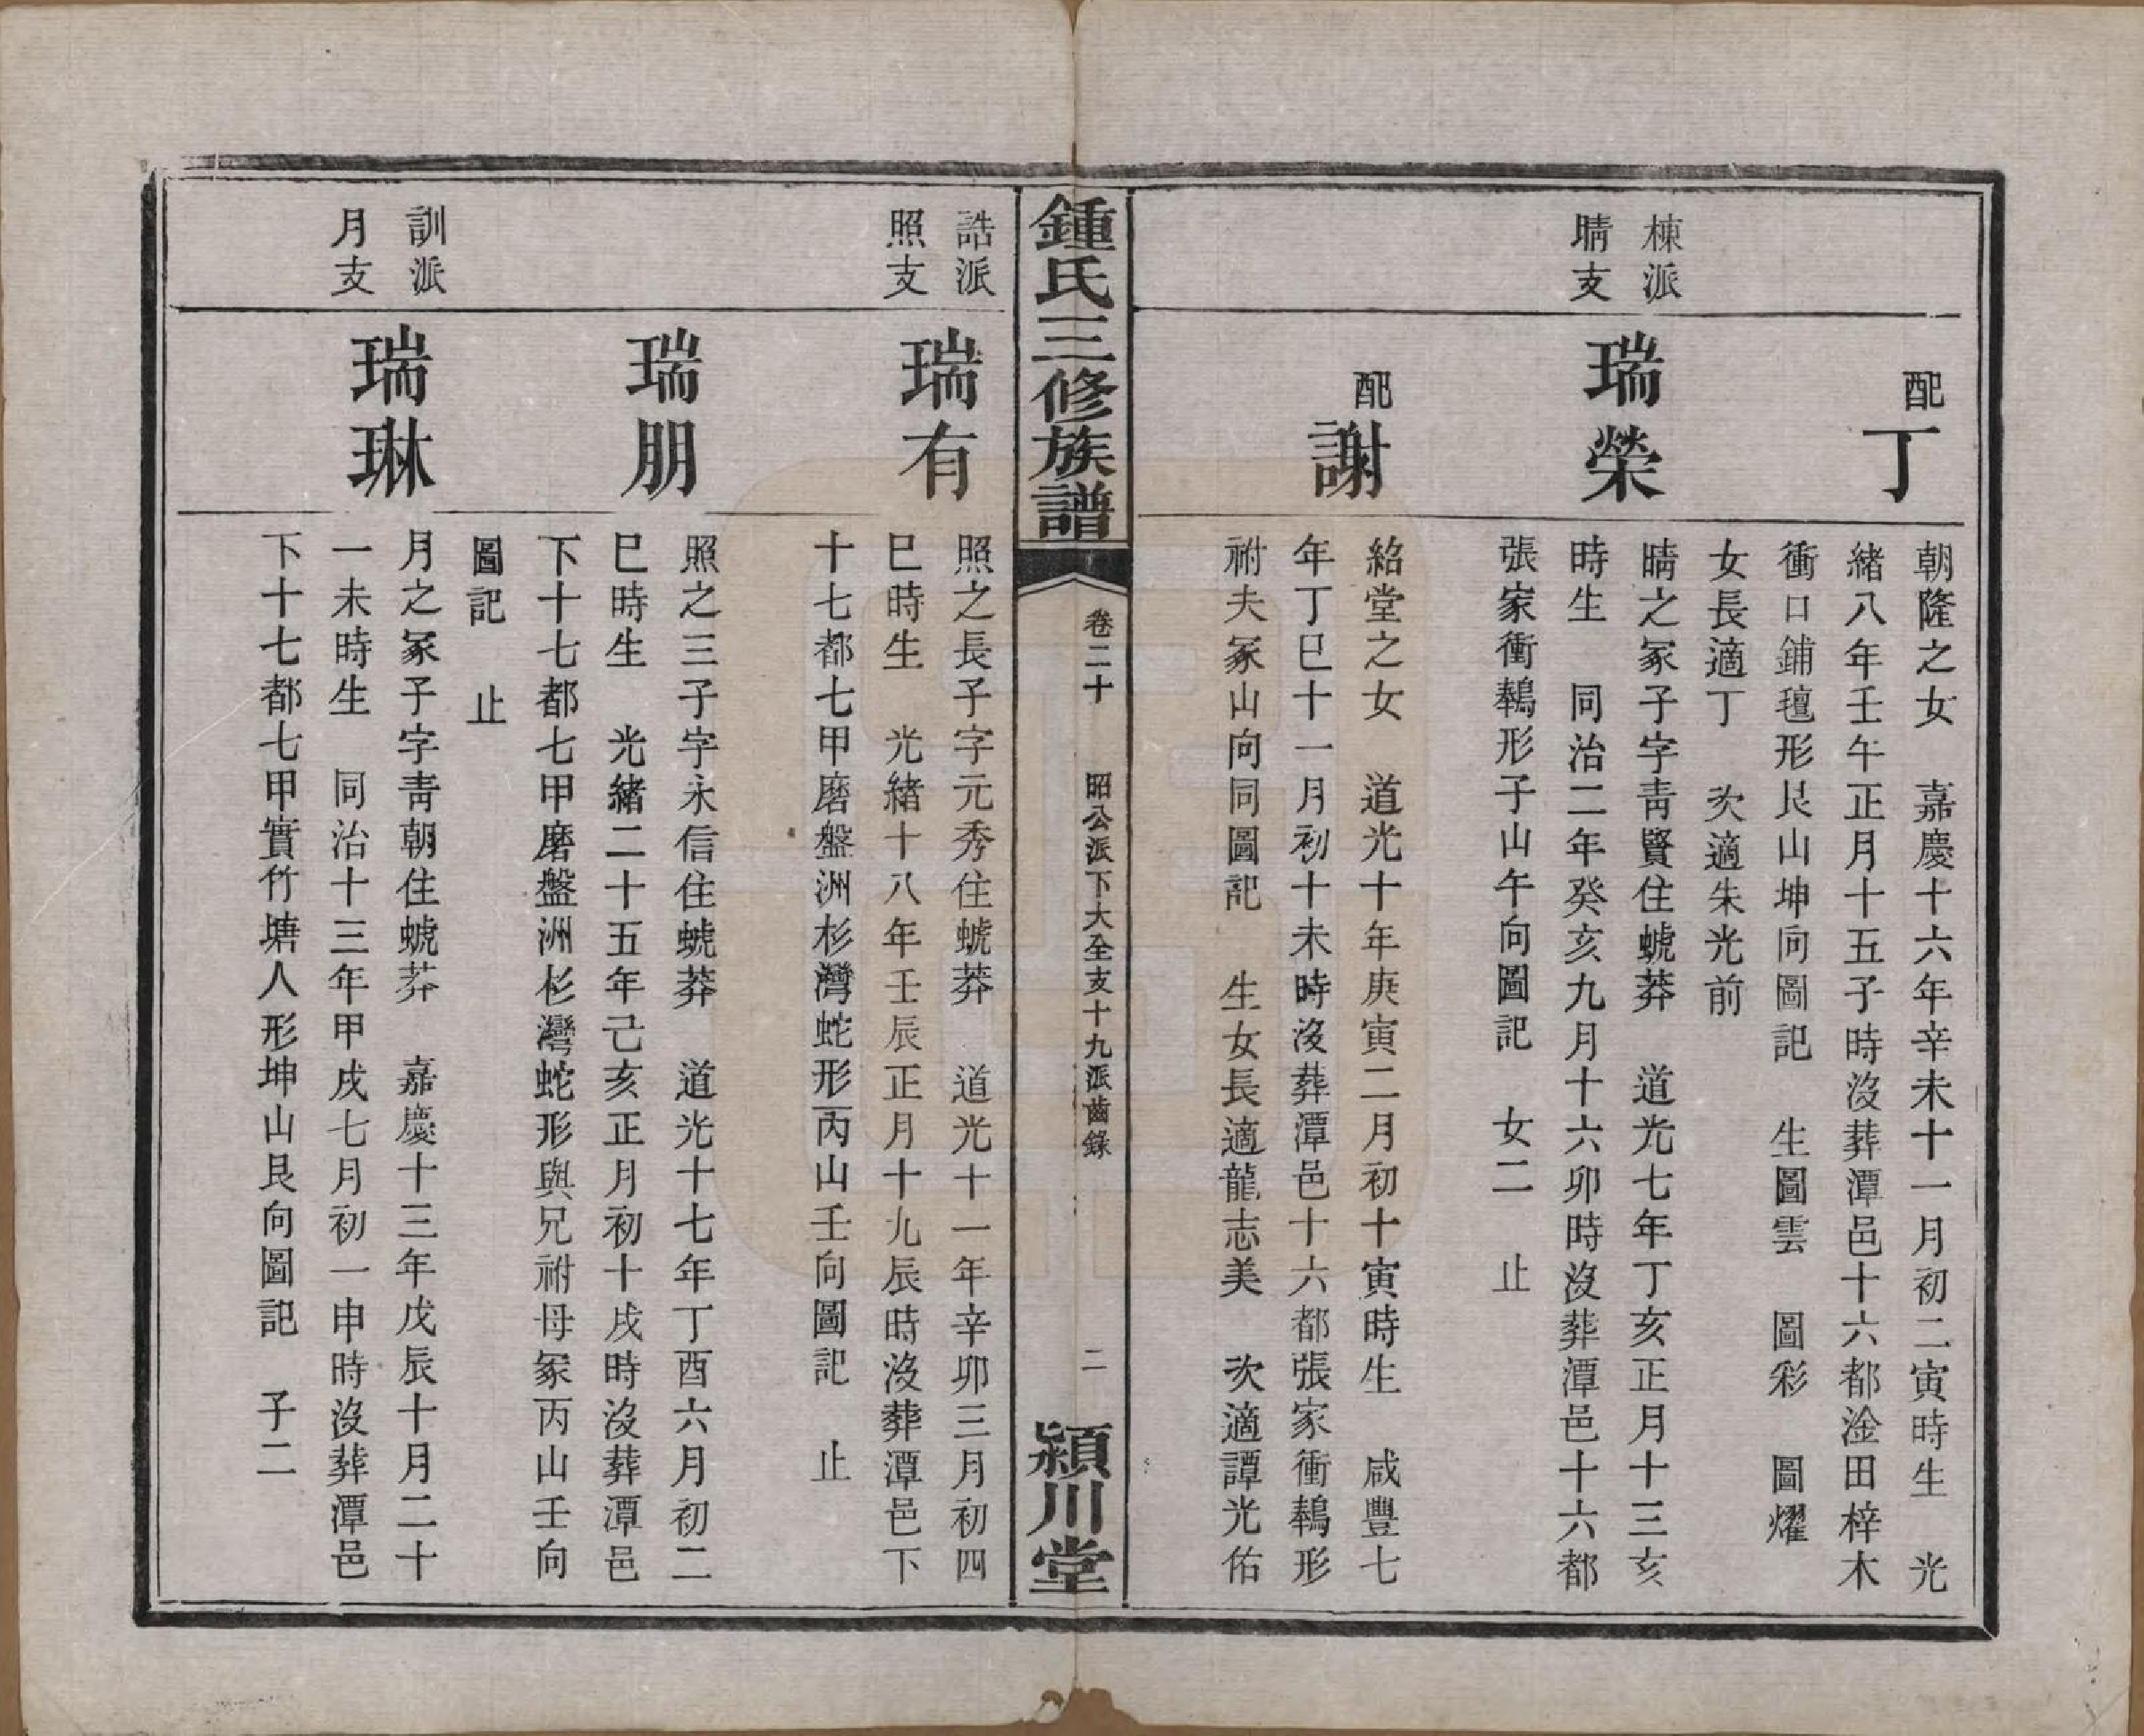 配丁
朝隆之女　嘉慶十六年辛未十一月初二寅時生　光
緒八年壬午正月十五子時沒葬潭邑十六都淦田梓木
衝口鋪氊形艮山坤向圖記　生圖雲　圖彩　圖燿
女長適丁　次適朱光前
棟派
晴支
瑞榮
晴之冡子字青賢住螃莽　道光七年丁亥正月十三亥
時生　同治二年癸亥九月十六卯時沒葬潭邑十六都
張家衝鵝形子山午向圖記　女二　止
配謝
紹堂之女　道光十年庚寅二月初十寅時生　咸豐七
年丁巳十一月初十未時沒葬潭邑十六都張家衝鵝形
祔夫冡山向同圖記　生女長適龍志美　次適譚光佑
鍾氏三修族譜
卷二十　昭公派下大全支十九派齒錄　二
潁川堂
誥派
照支
瑞有
照之長子字元秀住螃莽　道光十一年辛卯三月初四
巳時生　光緒十八年壬辰正月十九辰時沒葬潭邑下
十七都七甲磨盤洲杉灣蛇形丙山壬向圖記　止
瑞朋
照之三子字永信住螃莽　道光十七年丁酉六月初二
巳時生　光緒二十五年己亥正月初十戌時沒葬潭邑
下十七都七甲磨盤洲杉灣蛇形與兄祔母冡丙山壬向
圖記　止
訓派
月支
瑞琳
月之冡子字青朝住螃莽　嘉慶十三年戊辰十月二十
一未時生　同治十三年甲戌七月初一申時沒葬潭邑
下十七都七甲實竹塘人形坤山艮向圖記　子二